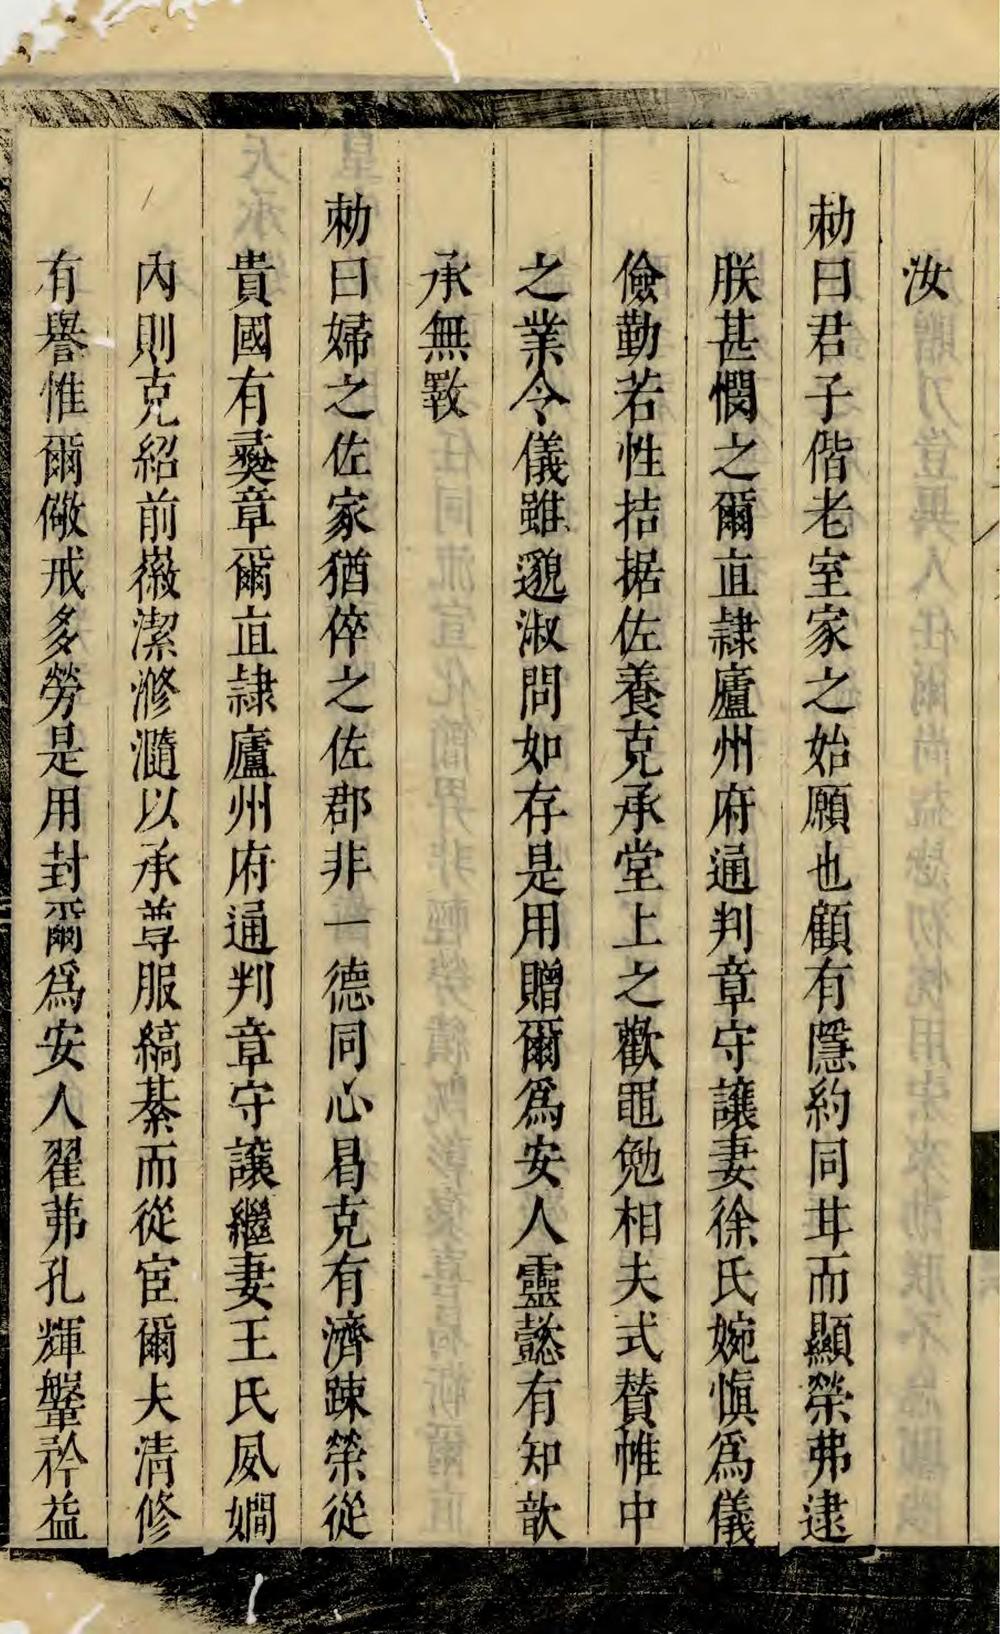 汝
勅曰君子偕老室家之始願也顧有隱約同甘而顯榮弗逮
朕甚憫之爾直隷廬州府通判章守讓妻徐氏婉愼爲儀
儉勤若性拮据佐養克承堂上之歡黽勉相夫式贊帷中
之業令儀雖邈淑問如存是用贈爾爲安人靈懿有知歆
承無斁
勅曰婦之佐家猶倅之佐郡非一德同心曷克有濟疎榮從
貴國有彞章爾直隷廬州府通判章守讓繼妻王氏夙嫻
內則克紹前徽潔滫瀡以承尊服縞綦而從宦爾夫清修
有譽惟爾儆戒多勞是用封爾爲安人翟茀孔輝鞶衿益